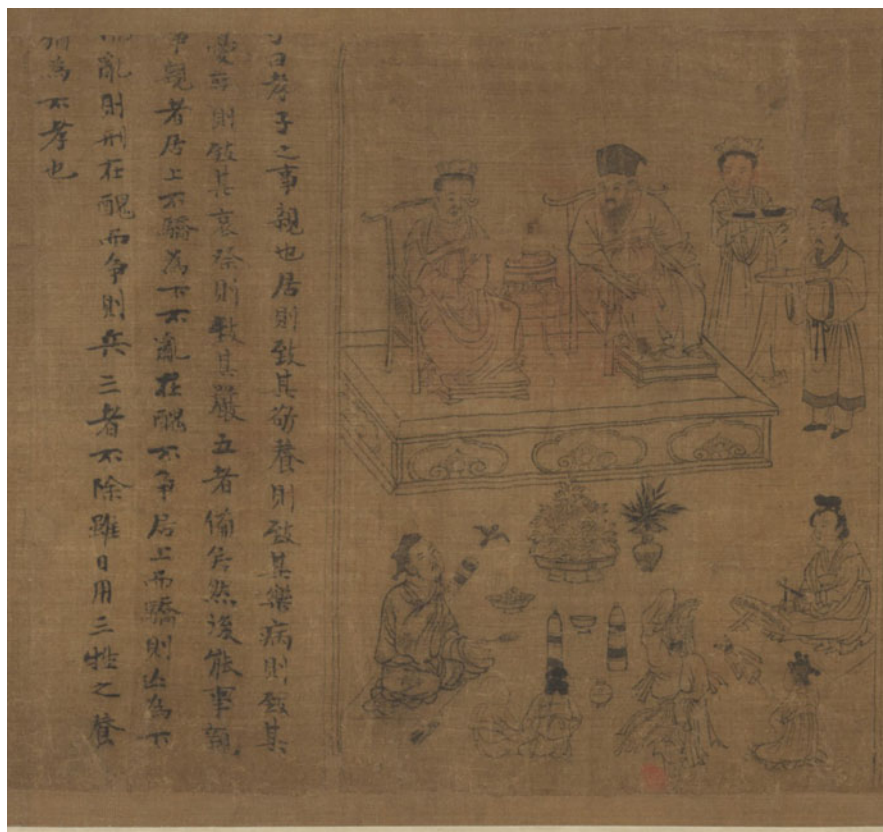 子曰孝子之事親也居則致其敬養則致其樂病則致其
憂喪則致其哀祭則致其嚴五者備矣然後能事親
事親者居上不驕為下不亂在醜不爭居上而驕則亡為下
而亂則刑在醜而爭則兵三者不除雖日用三牲之養
猶為不孝也